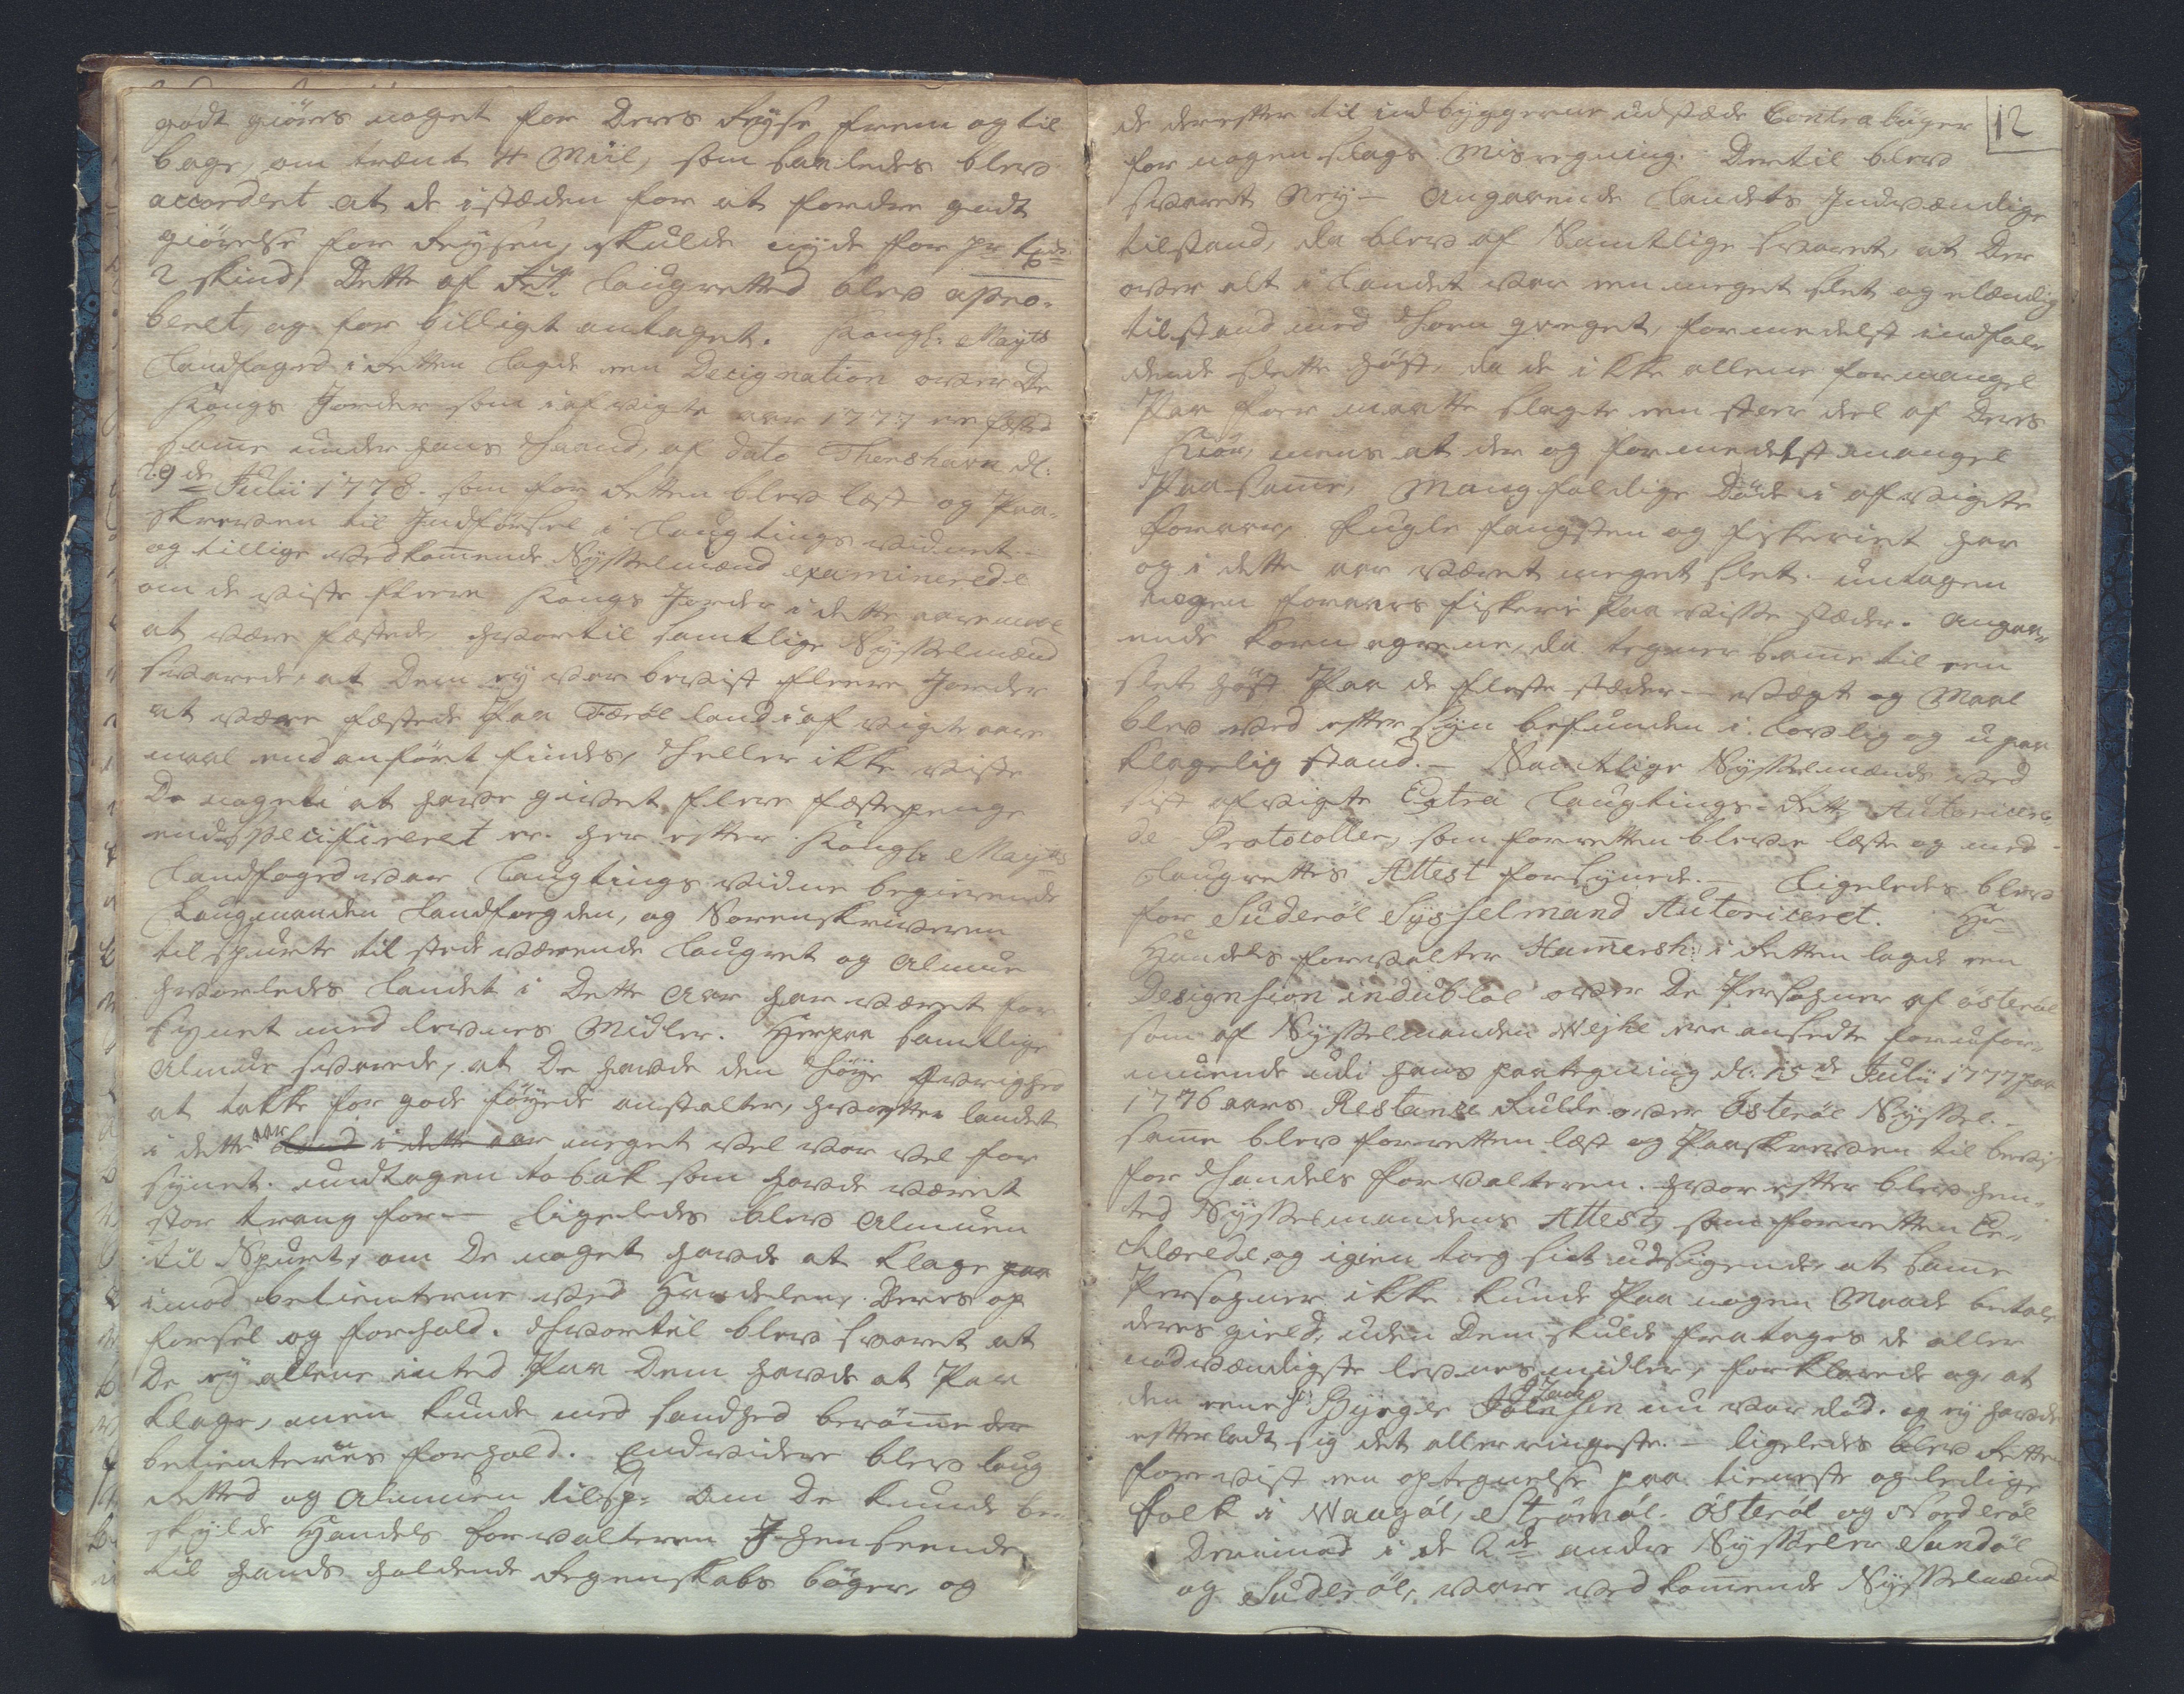 godt giöres noget for Deres Reyse frem og til
bage, om trent 4 Miil, som saaledes blev
accorderet at de isteden for at fordre godt
giörelse for Reysen, skulde nyde for pr
2 skind, Dette af Rett: laugretted blev appro-
beret, og for billigt antaget. Kongl: Mayts
landfoged i Retten lagde een Decignation over De
Kongs Jorder som i afvigte aar 1777 ere fæsted
samme under hans Haand, af dato Thorshavn d:
29de Julii 1778. som for Retten blev læst og Paa-
skreven til Indförsel i laugtings vidnet.-
og tillige vedkommende Sysselmænd examinerede
om de viste fleere Kongs Jorder i dette aaremaal
at være fæstede, hvortil samtlige Sysselmænd
svarede, at Dem ey var bevist fleere Jorder
at være fæstede paa Færöe land i afvigte aare
maal end anfört findes, Heller ikke viste
De noget i at have givet flere fæstepenge
end Specificeret er. her efter Kongl: Mayts
landfoged var laugtings vidne begierende
Laugmanden landfogden, og Sorenskriveren
til spurte til stede værende laugret og Almue
hvorledes landet i Dette Aar har været for
synet med levnets Midler. Herpaa samtlige
Almue svarede, at De havde den Höye Øvrighed
at takke for gode föyede anstalter, hvorefter landet
i dette aar land i dette aar meget vel var vel for
synet. undtagen tobak som havde været
stor trang for - ligeledes blev Almuen
til Spurt, om De noget havde at klage paa
imod betienterne ved Handelen, Deres op
forsel og forhold. Hvortil blev svaret at
De ey allene inted Paa Dem havde at Paa
klage, men kunde med sandhed berömme der
betienternes forhold. Endvidere blev laug
Retted og Almuen tilsp: om De kunde be-
skylde Handels forvalteren I henseende
til hands holdende Regenskabs böger, og
12
de derefter til indbyggerne udstæde Contrabüger
for nogen slags Misregning. Dertil blev
svaret Ney - Angaaende landets Indvændige
tilstand, da blev af Samtlige svaret, at Der
over alt i landet var een meget slet og elændig
tilstand med Horn qveget, formedelst indfal-
dende slette höst, da de ikke allene formangel
Paa foer maatte slagte een stoer deel af Deres
Kiör, mens at der og formedelst mangel
Paa samme, Mangfoldige Döde i afvigte
foraar, fugle fangsten og fiskeriet har
og i dette aar været meget slet. untagen
nogen foraars fiskeri Paa visse stæder. Angaa-
ende korn agrene, da tegner samme til een
slet höst Paa de fleste stæder - vægt og Maal
blev ved efter syn befunden i lovlig og upaa
klagelig stand. - Samtlige Sysselmænds ved
sist afvigte Extra laugtings-Rett Autoricere-
de Protocoller, som forretten bleve læste og med
laugrettes Attest forsynede. - ligeledes blev
for Suderöe Sysselmand Autoriceret. Hr
Handels forvalter Hamersh: i Retten lagde een
Designsion indublæe over De Persohner af österöe
som af Sysselmanden Wejhe ere ansedte forufor-
muende udi hans paategning d: 15de Julii 1777 paa
1776 aars Restance Rulle over Österöe Syssel.-
samme blev forretten læst og Paaskreven til bevis
for Handels forvalteren. hvor efter blev hen-
ted Sysselmandens Attest, som forretten Er-
klærede, og igien tog sin udsigende, at samme
Persohner ikke kunde Paa nogen Maade betale
deres gield, uden Dem skulde fratages de aller
nödvændigste levnets midler, forklarede og, at
den eene Byrge Joensen Zach nu var död. og ey havde
efterladt sig det aller ringeste. - ligeledes blev Retten
forevist een optegnelse paa tieneste og ledige
folk i Waagöe, Strömöe. Österöe og Norderöe
Derimod i de 2de andre Sysseler Sandöe
og Suderöe, vare vedkommende Sysselmænd